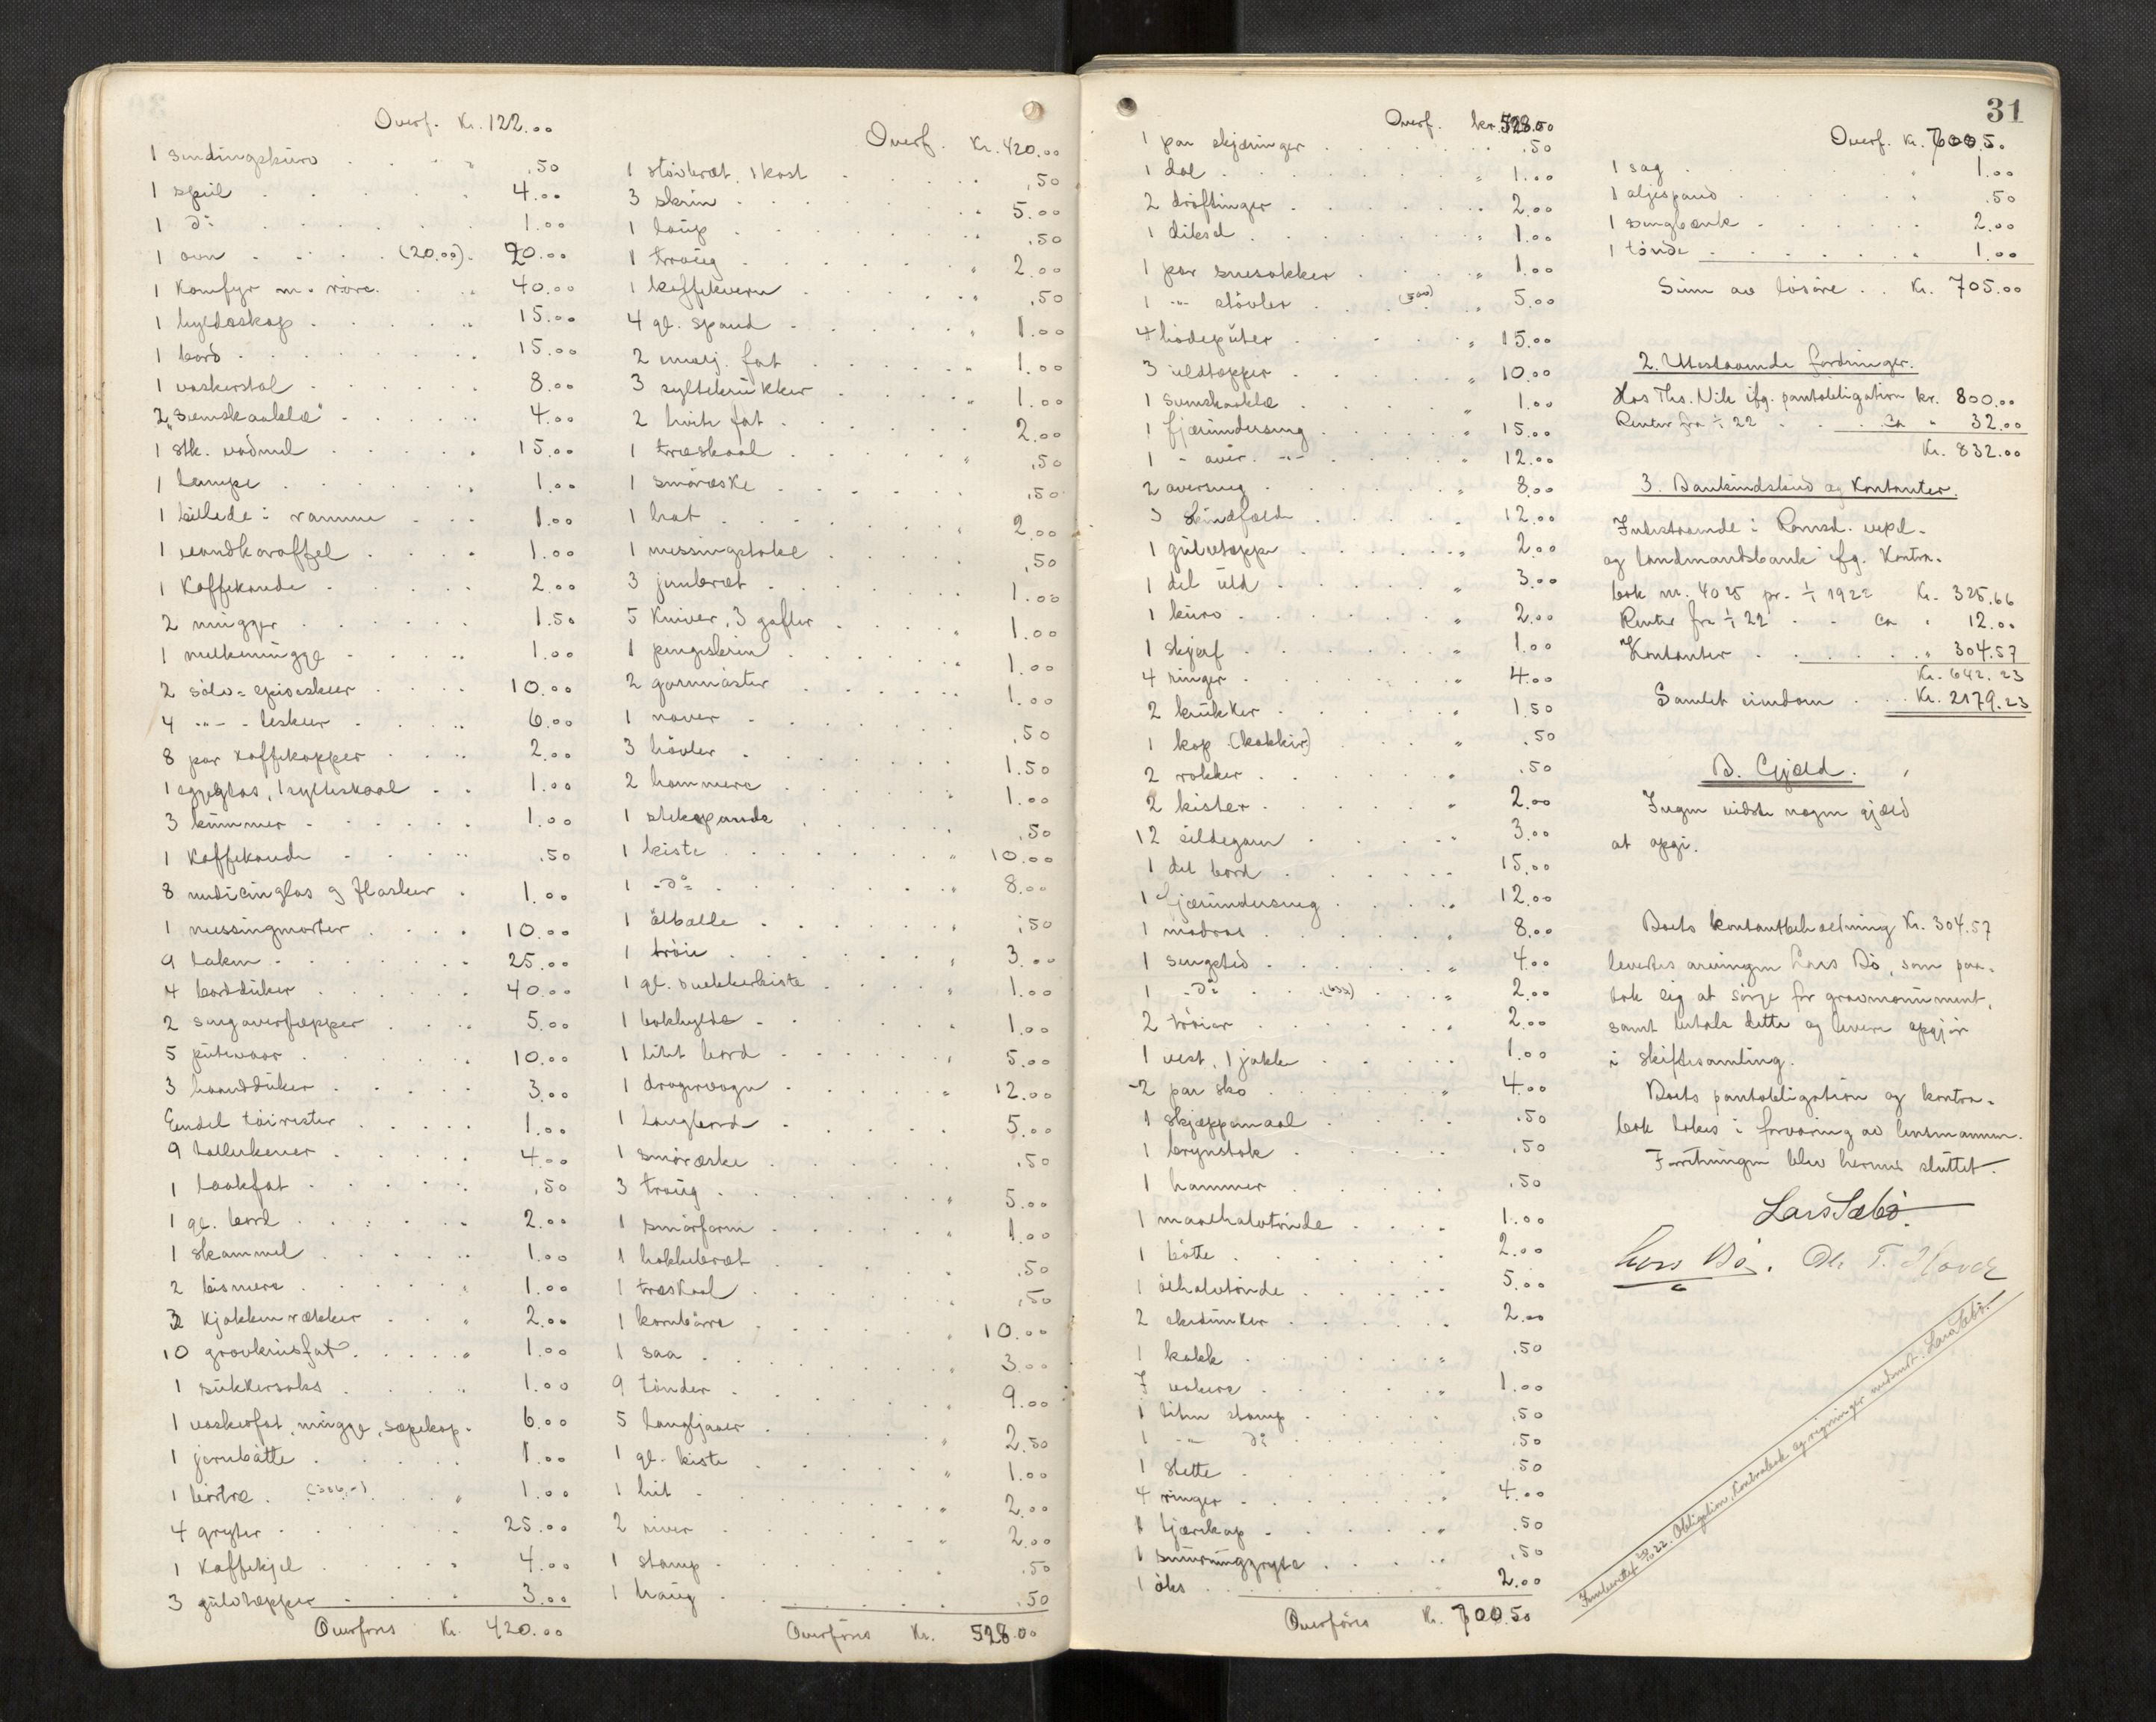 Overf. Kr. 122.00
1 . . . . .50
1 speil . . . . 4.00
1 do . . . . 1.00
1 ovn . . . . (20.00) . 20.00
1 Komfyr m. rørc. . . 40.00
1 hyldeskap . . . . 15.00
1 bord . . . . 15.00
1 vaskerstol . . . . 8.00
2 . . . . 4.00
1 stk. vadmel . . . . 15.00
1 lampe . . . . 1.00
1 billede i ramme . . . 1.00
1 vandkaraffel . . . . 1.00
1 Kaffekande . . . . 2.00
2 mugger . . . . 1.50
1 melkemugge . . . . 1.00
2 sølv-spiseskeer . . . . 10.00
4 -"- - teskeer . . . . 6.00
8 par kaffekopper . . . . 2.00
1 eggeglas, 1 sylteskaal . . 1.00
3 kummer . . . . 1.00
1 Kaffekande . . . . .50
8 medicinglas og flasker . 1.00
1 messingmorter . . . . 10.00
9 laken . . . . 25.00
4 bordduker . . . . 40.00
2 sengovertepper . . . . 5.00
5 putevaar . . . . 10.00
3 haandduker . . . . 3.00
Eendel tøirester . . . . 1.00
9 tallerkener . . . . 4.00
1 laakfat . . . . .50
1 gl. bord . . . . 2.00
1 skammel . . . . 1.00
2 bismere . . . . 1.00
2 Kjøkkenrækker . . . 2.00
10 grovkrusfat . . . . 1.00
1 sukkersaks . . . . 1.00
1 vaskefat, mugge, sæpekop . 6.00
1 jernbøtte . . . . 1.00
1 børtre . . . . 1.00
4 gryter . . . . 25.00
1 Kaffekjel . . . . 4.00
3 gulvtæpper . . . . 3.00
Overføres Kr. 420.00
Overf. Kr. 420.00
1 støvbræt, 1 kost . . . . .50
3 skrin . . . . 5.00
1 laup . . . . .50
1 traug . . . . 2.00
1 kaffekvern . . . . .50
4 gl. spand . . . . 1.00
2 emalj. fat . . . . 1.00
3 syltekrukker . . . . 1.00
2 hvite fat . . . . 2.00
1 træskaal . . . . .50
1 smøræske . . . . .50
1 hat . . . . 2.00
1 messingstake . . . . .50
3 jernbræt . . . . 1.00
5 Kniver, 3 gafler . . . . 1.00
1 pengeskrin . . . . 1.00
2 garnnøster . . . . 1.00
1 naver . . . . .50
3 høvler . . . . 1.50
2 hammere . . . . 1.00
1 stekepande . . . . .50
1 kiste . . . . 10.00
1 -do- . . . . 8.00
1 ølbolle . . . . .50
1 trøie . . . . 3.00
1 gl. snekkerkiste . . . . 1.00
1 bokhylde . . . . 1.00
1 litet bord . . . . 5.00
1 dragervogn . . . . 12.00
1 langbord . . . . 5.00
1 smøræske . . . . .50
3 traug . . . . 5.00
1 smørform . . . . 1.00
1 hakkebræt . . . . .50
1 træskaal . . . . .50
1 kornbøre . . . . 10.00
1 saa . . . . 3.00
9 tønder . . . . 9.00
5 langljaaer . . . . 2.50
1 gl. kiste . . . . 1.00
1 hit . . . . 2.00
2 river . . . . 2.00
1 stamp . . . . .50
1 haug . . . . .50
Overføres Kr. 528.00
31
Overf. kr. 528.00
1 par skjæringer . . . . .50
1 dol . . . . 1.00
2 drøftinger . . . . 2.00
1 diksel . . . . 1.00
1 par snesokker . . . . 1.00
1 -"- støvler . . (5.00) . 5.00
4 hodeputer . . . . 15.00
3 uldtepper . . . . 10.00
1 . . . . 1.00
1 fjærunderseng . . . . 15.00
1 - over -"- . . . . 12.00
2 overseng . . . . 8.00
3 skindfeld . . . . 12.00
1 gulvtæppe . . . . 2.00
1 del uld . . . . 3.00
1 kurv . . . . 2.00
1 skjerf . . . . 1.00
4 ringer . . . . 4.00
2 krukker . . . . 1.50
1 kop . . . . .50
2 rokker . . . . .50
2 kister . . . . 2.00
12 sildegarn . . . . 3.00
1 del bord . . . . 15.00
1 fjærunderseng . . . . 12.00
1 madras . . . . 8.00
1 sengsted . . . . 4.00
1 -do- . . . . 2.00
2 trøier . . . . 2.00
1 vest, 1 jakke . . . . 1.00
2 par sko . . . . 4.00
1 skjæppemaal . . . . .50
1 brynstok . . . . .50
1 hammer . . . . .50
1 maalhalvtønde . . . . 1.00
1 bøtte . . . . 2.00
1 ølhalvtønde . . . . 5.00
2 ekedunker . . . . 2.00
1 kakk . . . . .50
7 vakere . . . . 1.00
1 liten stamp . . . . .50
1 -"- do . . . . .50
1 slette . . . . .50
4 ringer . . . . 4.00
1 tjærekop . . . . .50
1 smurninggryte . . . . .50
1 øks . . . . 2.00
Overføres Kr. 700.50
Overf. Kr. 700.50
1 sag . . . . 1.00
1 oljespand . . . . .50
1 sengbænk . . . . 2.00
1 tønde . . . . 1.00
Sum av løsøre . . Kr. 705.00
2. Utestaaende fordringer.
Hos Ths. Nile ifg. pantobligation kr. 800.00
Renter fra 1/1 22 . . ca " 32.00
Kr. 832.00
3. Bankindskud og Kontanter.
Indestaaende i Romsd. veksl-
og landmandsbank ifg. Kontra-
bok nr. 4025 pr. 1/1 1922 Kr. 325.66
Renter fra 1/1 22 . . ca " 12.00
Kontanter . . . . " 304.57
Kr. 642.23
Samlet eiendom . . Kr. 2179.23
B. Gjæld.
Ingen vidste nogen gjæld
at opgi.
Boets kontantbeholdning Kr. 304.57
levertes arvingen Lars Bø, som paa-
tok sig at sørge for gravmonument,
samt betale dette og levere opgjør
i skiftesamling.
Boets pantobligation og kontra-
bok tokes i forvaring av lensmannen.
Forretningen blev hermed sluttet.
Lars Sæbø.
Lars Bø. Ole T. Hovde
Innlevert 20/10 22. Obligation, Kontrabok og regninger medsendt. Lars Sæbø.